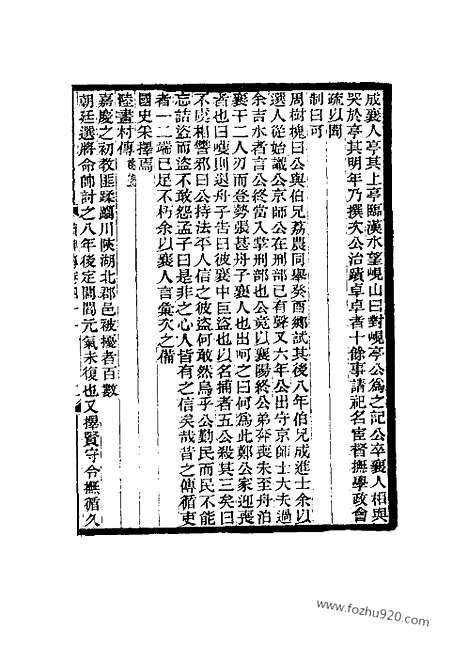 成襄人亭其上亭臨漢水望峴山曰對峴亭公爲之記公卒襄人相與
哭於亭其明年乃撰次公治蹟卓卓者十餘事請祀名宦督撫學政會
疏以聞
制曰可
周樹槐曰公與伯兄荔農同舉癸酉鄉試其後八年伯兄成進士余以
選人從始識公京師公在刑部已有聲又六年公出守京師士大夫過
余吉水者言公終當入掌刑部也公竟以襄陽終公弟奔喪未至舟泊
襄干二人刃而登勢張甚舟子襄人也出呵之曰何爲此鄭公家迎喪
者也曰嘎則退舟子告曰彼襄中巨盜也以名捕者五公殺其三矣曰
不虞相讐邪曰公持法平人信之彼盜何敢然烏乎公勤民而民不能
忘詰盜而盜不敢怨孟子曰是非之心人皆有之信矣哉昔之傳循吏
者一二端已足不朽余以襄人言彙次之備
國史采擇焉
陸畫村傳
嘉慶之初教匪蹂躪川陝湖北郡邑被擾者百數
朝廷選將命帥討之八年後定閭閻元氣未復也又擇賢守令撫循久
www.fozhu920.com